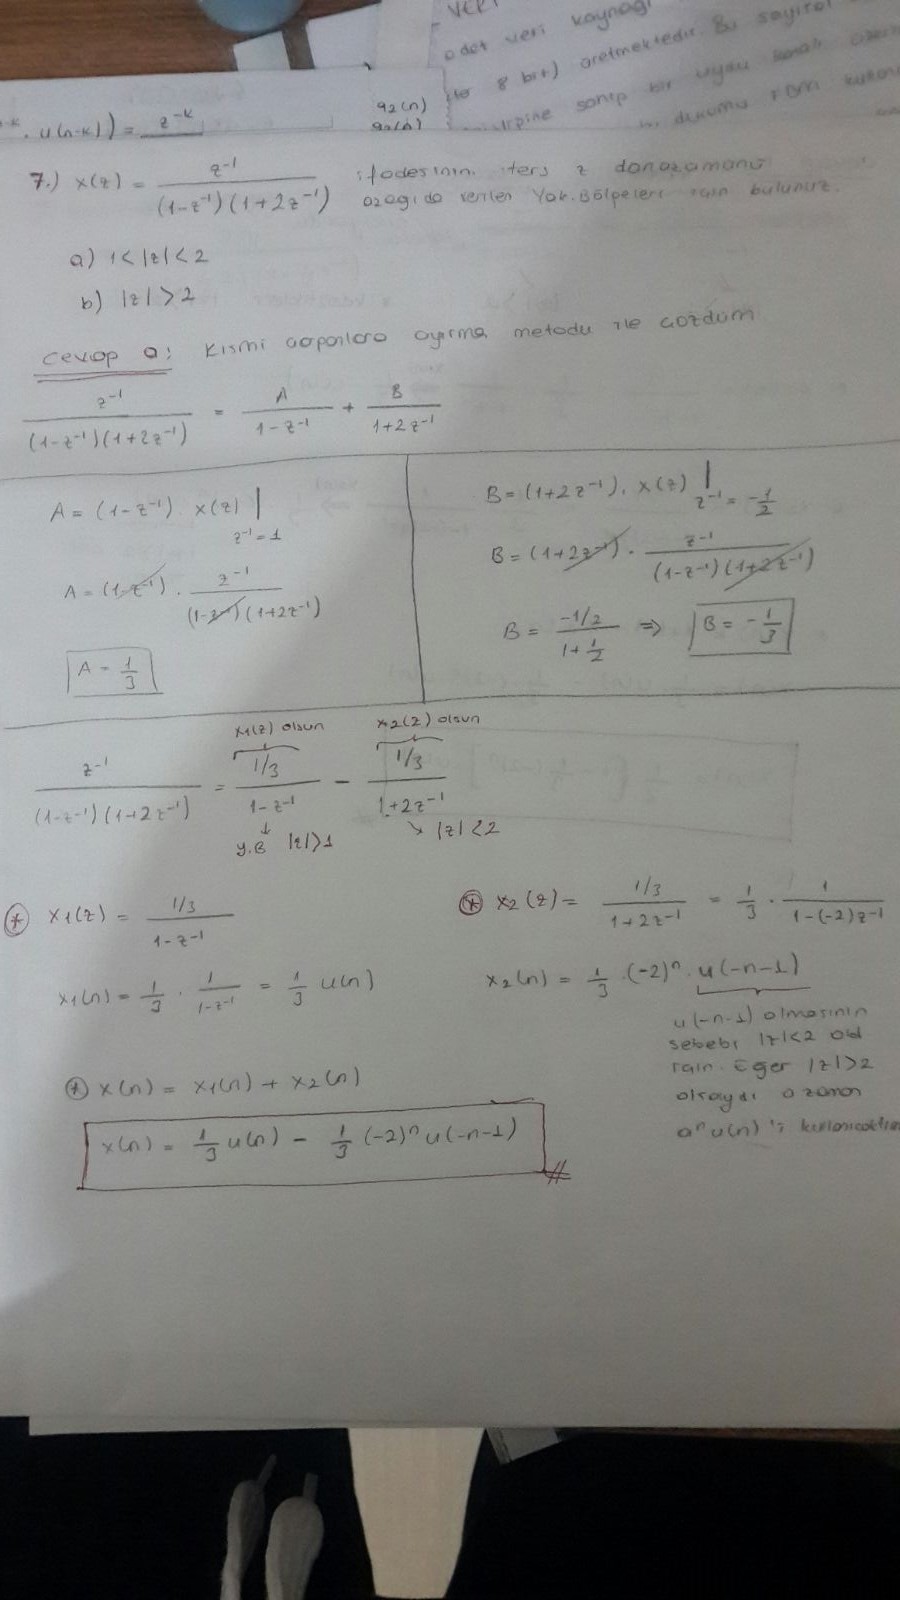 VERİ
adet veri kaynağı
8 bit) üretmektedir. Bu sayısal
bir uydu kanalı üzerin
durumu FDM kullan
. u(n-k)) = z^-k
q2(n)
7.) x(z) = z^-1 / (1-z^-1)(1+2z^-1) ifadesinin ters z dönüşümünü
aşağıda verilen Yak. Bölgeleri için bulunuz.
a) 1<|z|<2
b) |z|>2
Cevap a: Kısmi çarpanlara ayırma metodu ile çözdüm
z^-1 / (1-z^-1)(1+2z^-1) = A / 1-z^-1 + B / 1+2z^-1
A = (1-z^-1) x(z) | z^-1=1
A = (1-z^-1) . z^-1 / (1-z^-1)(1+2z^-1)
A = 1/3
B = (1+2z^-1). x(z) | z^-1 = -1/2
B = (1+2z^-1) . z^-1 / (1-z^-1)(1+2z^-1)
B = -1/2 / 1+1/2 => B = -1/3
x1(z) olsun x2(z) olsun
z^-1 / (1-z^-1)(1+2z^-1) = 1/3 / 1-z^-1 - 1/3 / 1+2z^-1
↓ y.B |z|>1 ↘ |z|<2
* x1(z) = 1/3 / 1-z^-1
x1(n) = 1/3 . 1 / 1-z^-1 = 1/3 u(n)
* x2(z) = 1/3 / 1+2z^-1 = 1/3 . 1 / 1-(-2)z^-1
x2(n) = 1/3 . (-2)^n . u(-n-1)
u(-n-1) olmasının
sebebi |z|<2 old
için. Eğer |z|>2
olsaydı o zaman
a^n u(n) 'i
* x(n) = x1(n) + x2(n)
x(n) = 1/3 u(n) - 1/3 (-2)^n u(-n-1)